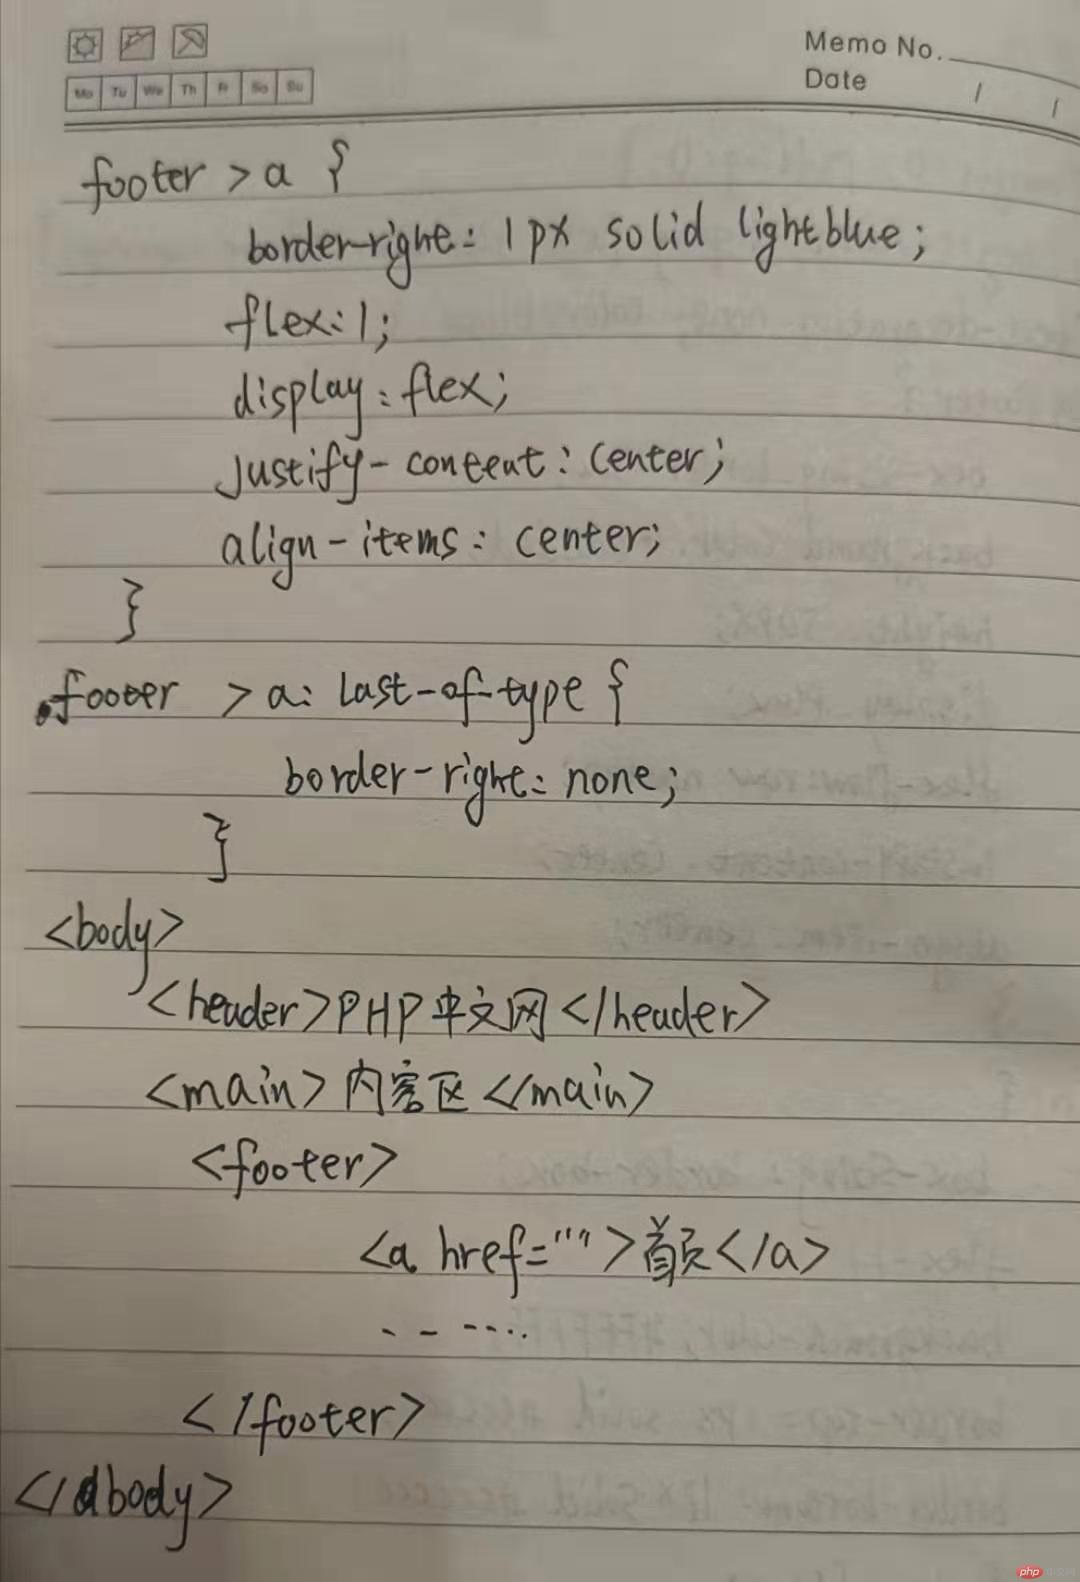 Memo No.
Date / /
Mo Tu We Th Fr Sa Su
footer > a {
border-right: 1px solid lightblue;
flex: 1;
display: flex;
justify-content: center;
align-items: center;
}
.footer > a: last-of-type {
border-right: none;
}
<body>
<header>PHP中文网</header>
<main>内容区</main>
<footer>
<a href="">首页</a>
- - ----..
</footer>
</body>
php